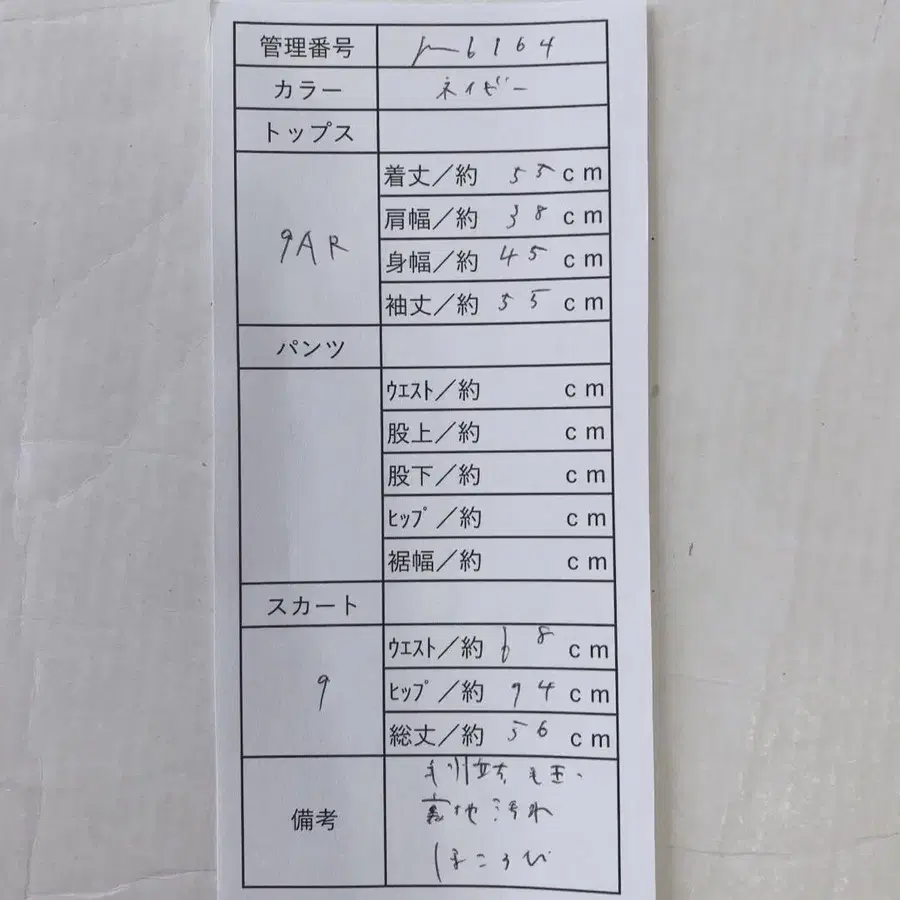 管理番号
カラー ネイビー
トップス
9AR
着丈/約 55 cm
肩幅/約 38 cm
身幅/約 45 cm
袖丈/約 55 cm
パンツ
ｳｴｽﾄ/約 cm
股上/約 cm
股下/約 cm
ﾋｯﾌﾟ/約 cm
裾幅/約 cm
スカート
9
ｳｴｽﾄ/約 68 cm
ﾋｯﾌﾟ/約 94 cm
総丈/約 56 cm
備考
毛羽立ち 毛玉、
裏地汚れ
ほころび